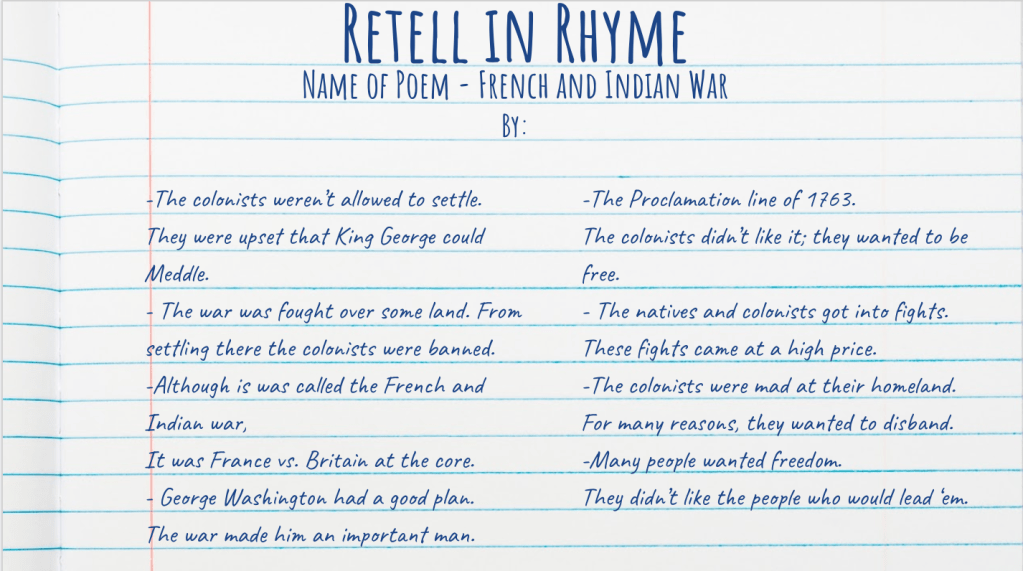 Retell in Rhyme
Name of Poem - French and Indian War
By:
-The colonists weren't allowed to settle.
They were upset that King George could
Meddle.
- The war was fought over some land. From
settling there the colonists were banned.
-Although is was called the French and
Indian war,
It was France vs. Britain at the core.
- George Washington had a good plan.
The war made him an important man.
-The Proclamation line of 1763.
The colonists didn't like it; they wanted to be
free.
- The natives and colonists got into fights.
These fights came at a high price.
-The colonists were mad at their homeland.
For many reasons, they wanted to disband.
-Many people wanted freedom.
They didn't like the people who would lead 'em.